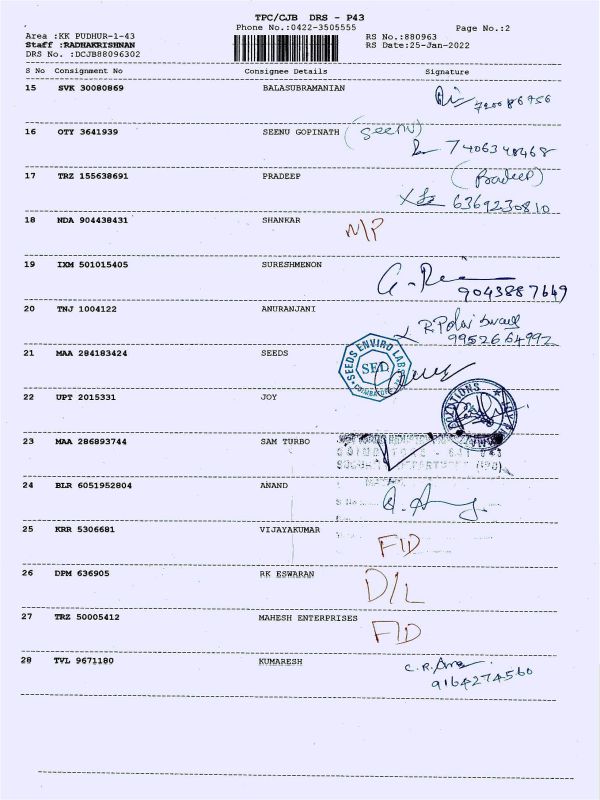 TPC/CJB DRS - P43
Phone No.:0422-3505555
Page No.:2
Area :KK PUDHUR-1-43
Staff :RADHAKRISHNAN
DRS No. :DCJB88096302
RS No.:880963
RS Date:25-Jan-2022
S No Consignment No Consignee Details Signature
15 SVK 30080869 BALASUBRAMANIAN
16 OTY 3641939 SEENU GOPINATH (Seenu)
17 TRZ 155638691 PRADEEP (Pradeep)
6369230810
18 NDA 904438431 SHANKAR
19 IXM 501015405 SURESHMENON
9043887649
20 TNJ 1004122 ANURANJANI
9952664992
21 MAA 284183424 SEEDS
SEEDS ENVIRO LAB
SEL
22 UPT 2015331 JOY
23 MAA 286893744 SAM TURBO
24 BLR 6051952804 ANAND
25 KRR 5306681 VIJAYAKUMAR
26 DPM 636905 RK ESWARAN D/L
27 TRZ 50005412 MAHESH ENTERPRISES
28 TVL 9671180 KUMARESH
9164274560